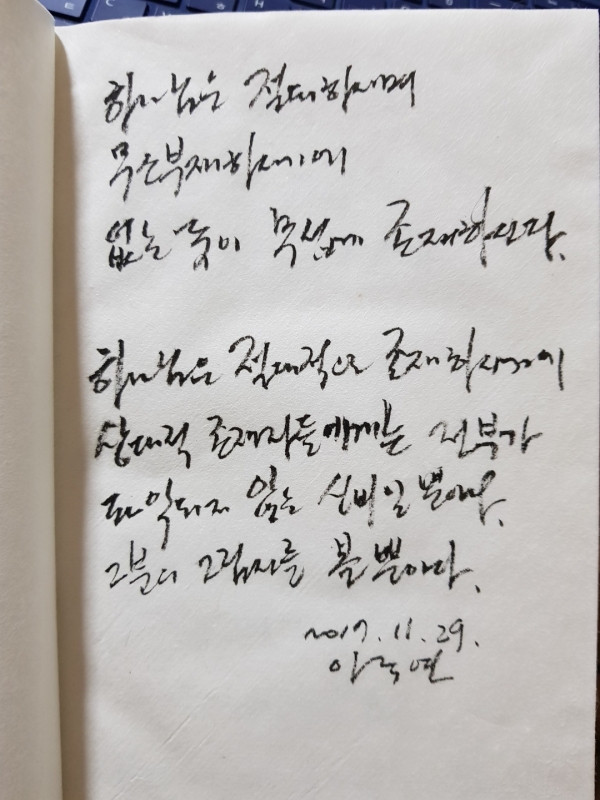 하나님은 절대하시며
무소부재하시기에
없는 듯이 무섭게 존재하신다.
하나님은 절대적으로 존재하시기에
상대적 존재자들에게는 전부가
파악되지 않는 신비일 뿐이다.
그분의 그림자를 볼 뿐이다.
2017. 11. 29.